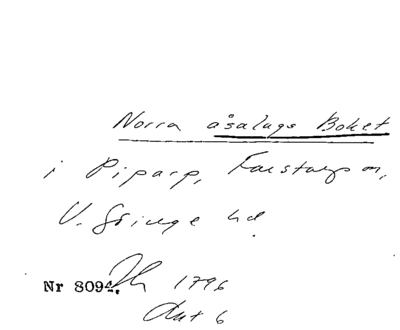 Norra åsalags Boket
i Piparp, Farstorps m,
V. Göinge hd.
Nr 8094. Jh 1796
Akt 6